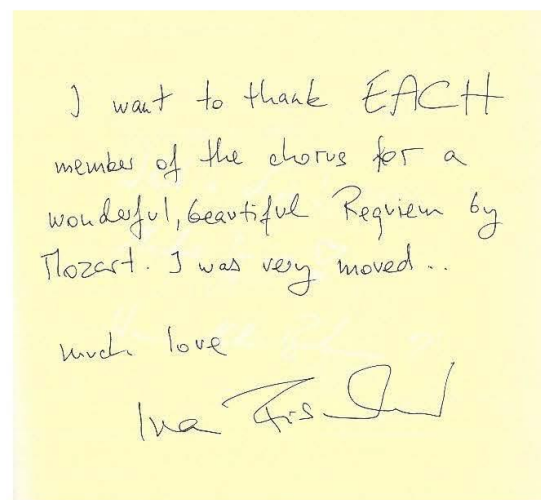 I want to thank EACH
member of the chorus for a
wonderful, beautiful Requiem by
Mozart. I was very moved..
much love